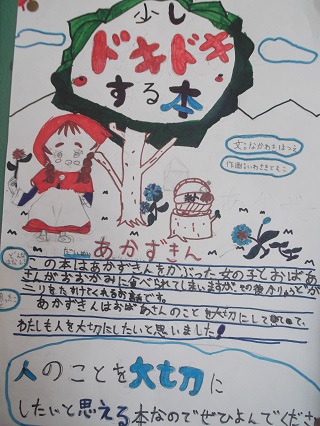 少し
ドキドキ
する本
文:なかわきはつえ
作画:いわさきともこ
あかずきん
この本はあかずきんをかぶった女の子とおばあ
さんがおおかみに食べられてしまいますが、その後かりゅうどが
ニりをたすけてくれるお話です。
あかずきんはおばあさんのことを大切にして
わたしも人を大切にしたいと思いました!
人のことを大切に
したいと思える本なのでぜひよんでくださ